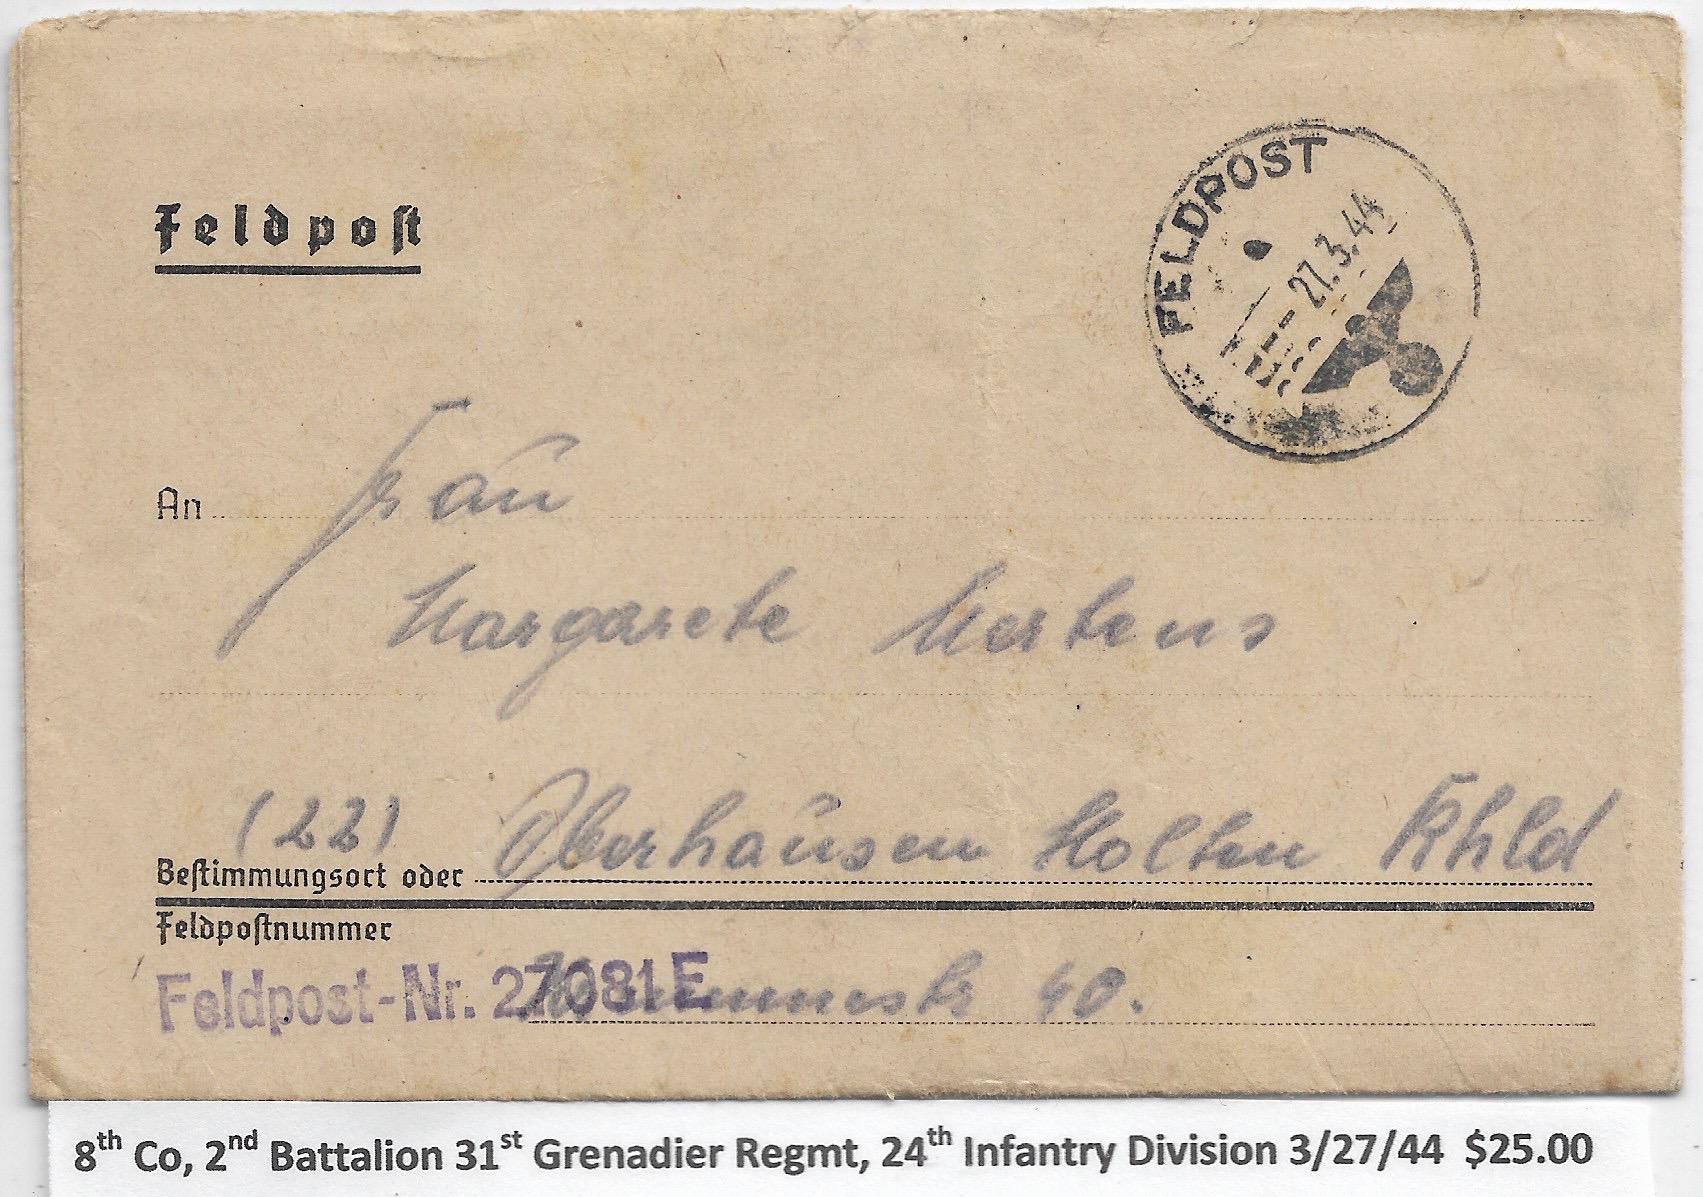 Feldpost
FELDPOST
27.3.44
An Frau
Margarete Mertens
(22) Oberhausen Holten Rhld
Bestimmungsort oder
Feldpostnummer
Feldpost-Nr. 27081E
40.
8th Co, 2nd Battalion 31st Grenadier Regmt, 24th Infantry Division 3/27/44 $25.00